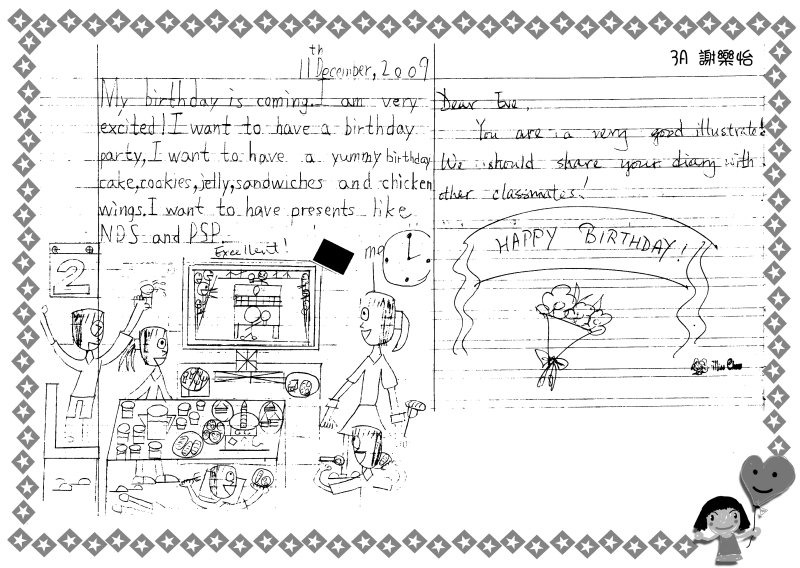 11th December, 2009
My birthday is coming. I am very
excited! I want to have a birthday
party, I want to have a yummy birthday
cake, cookies, jelly, sandwiches and chicken
wings. I want to have presents like
NDS and PSP.
Excellent!
me
2
3A 謝樂怡
Dear Eve,
You are a very good illustrator!
We should share your diary with
other classmates!
HAPPY BIRTHDAY!